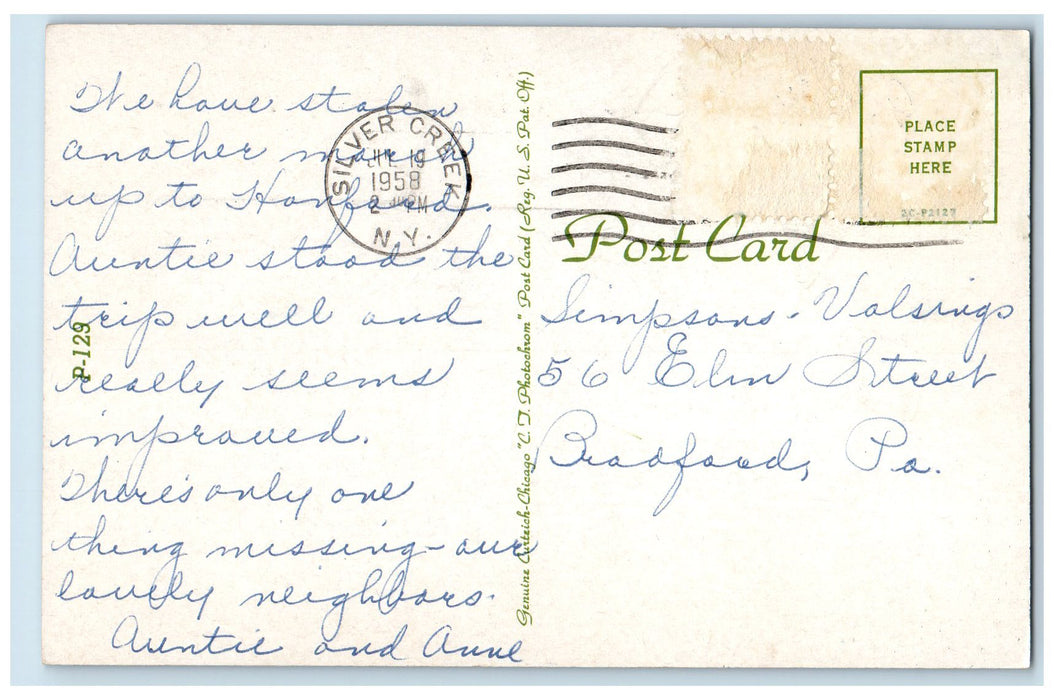 We have stolen
another march
up to Hanford.
Auntie stood the
trip well and
really seems
improved.
There's only one
thing missing - our
lovely neighbors.
Auntie and Anne
P-129
SILVER CREEK
19
1958
2 PM
N.Y.
Genuine Curteich-Chicago "C. T. Photochrom" Post Card (Reg. U. S. Pat. Off.)
PLACE
STAMP
HERE
2C-P2127
Post Card
Simpsons - Valsings
56 Elm Street
Bradford, Pa.